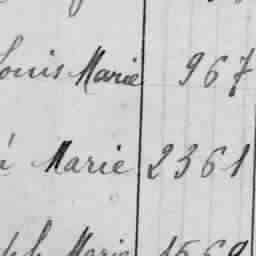 Louis Marie 967
é Marie 2361
ph Marie 1569